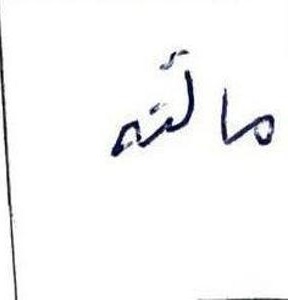 مالته